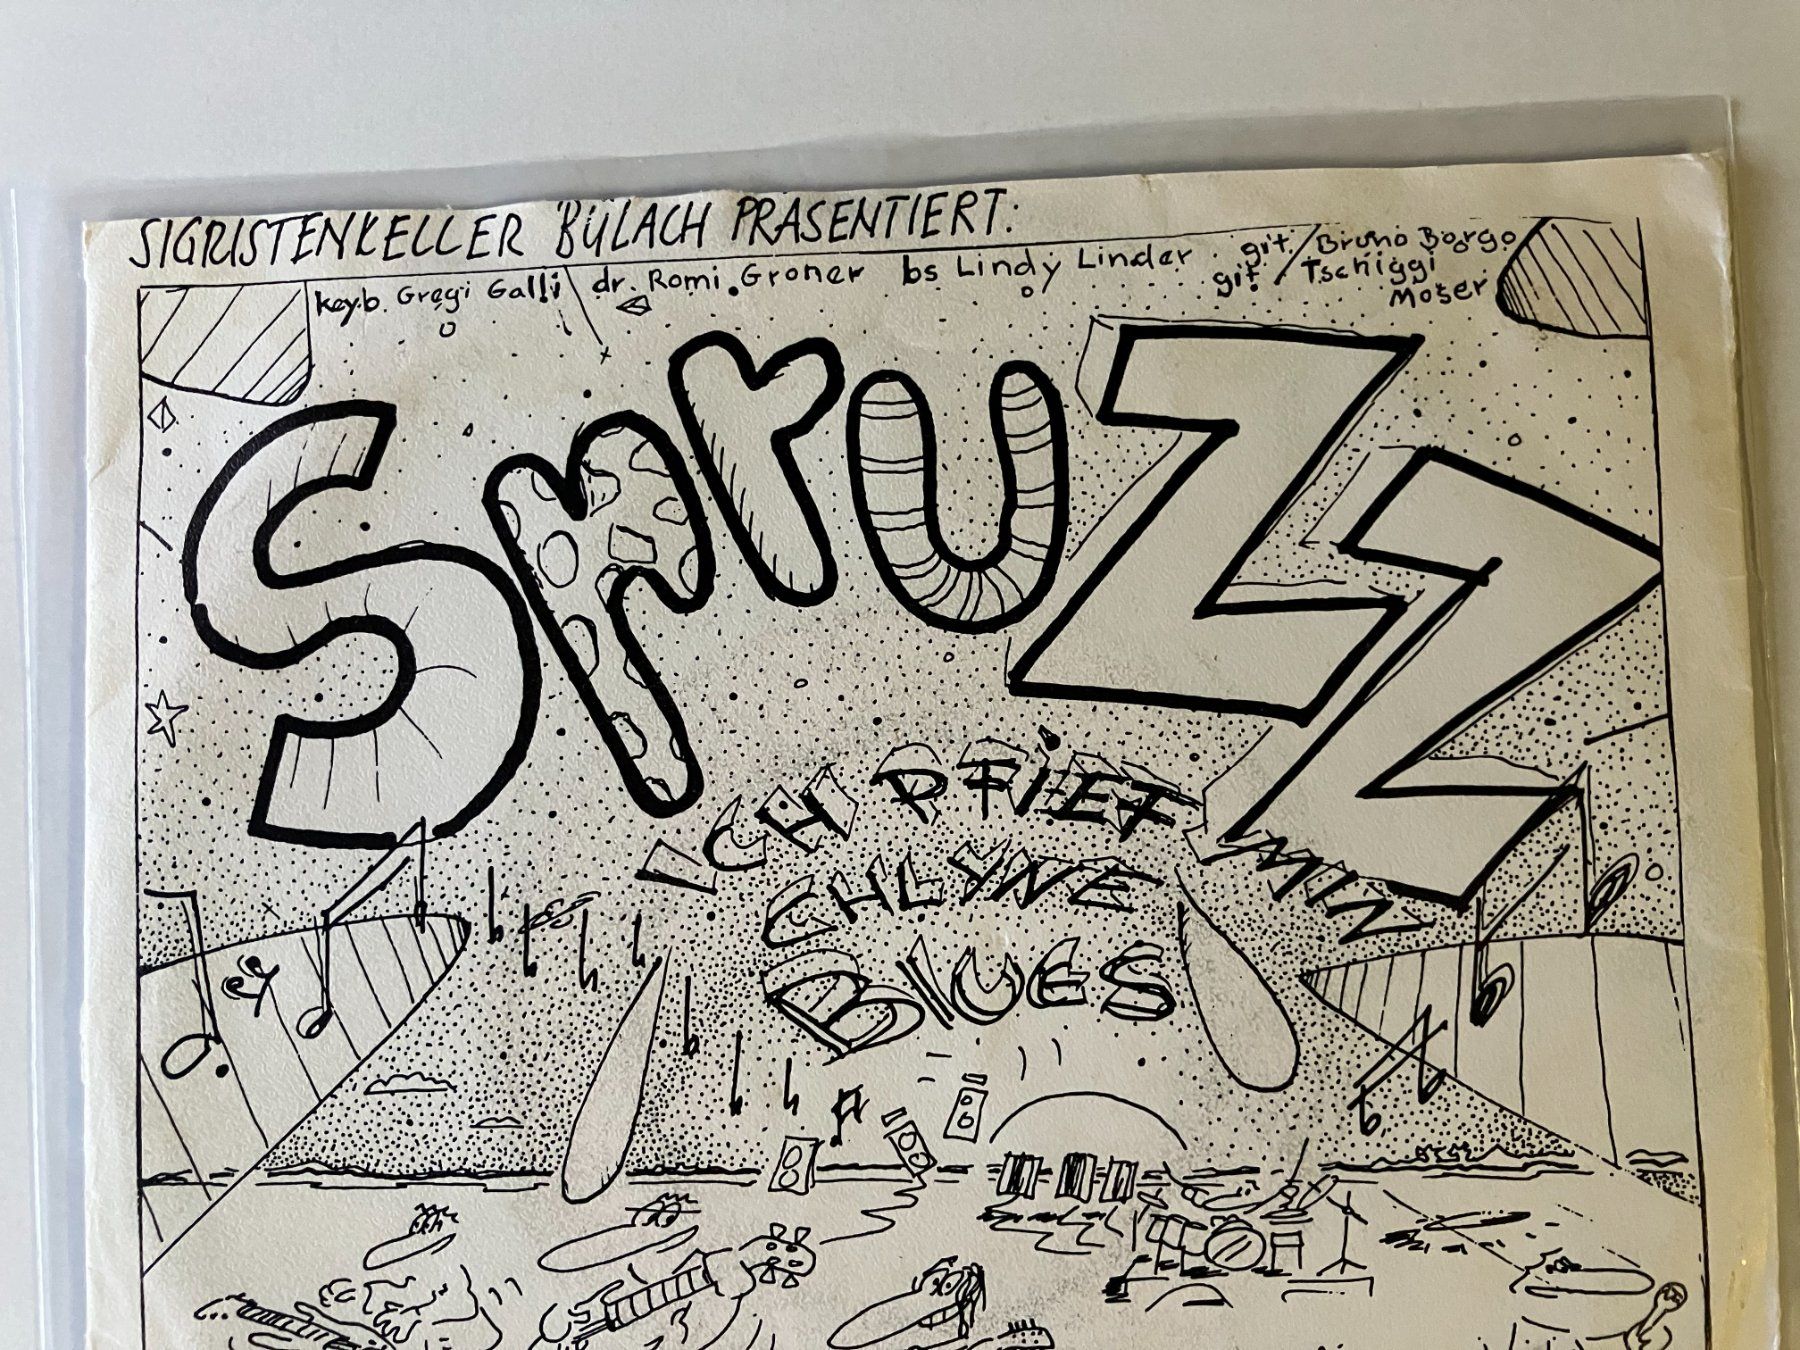 SIGRISTENKELLER BÜLACH PRÄSENTIERT:
keyb. Gregi Galli dr. Romi Groner bs Lindy Linder git. Bruno Borgo
git Tschiggi
Moser
SpruZZ
ICH PFIEF MIN
CHLYNE
BLUES